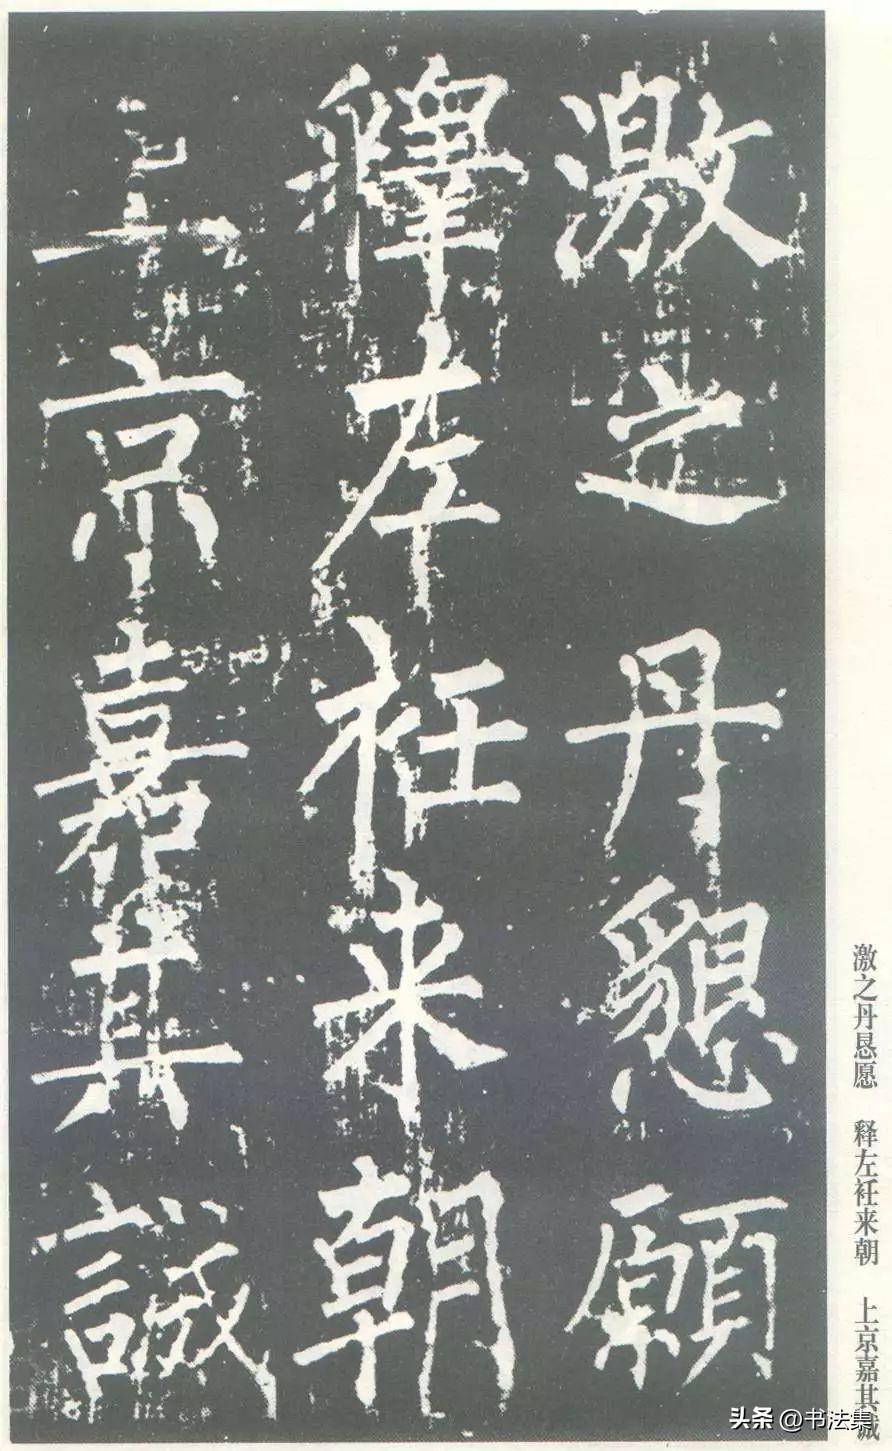 激之丹懇願
釋左衽来朝
上京嘉其誠
激之丹恳愿 释左衽来朝 上京嘉其诚
头条 @书法集